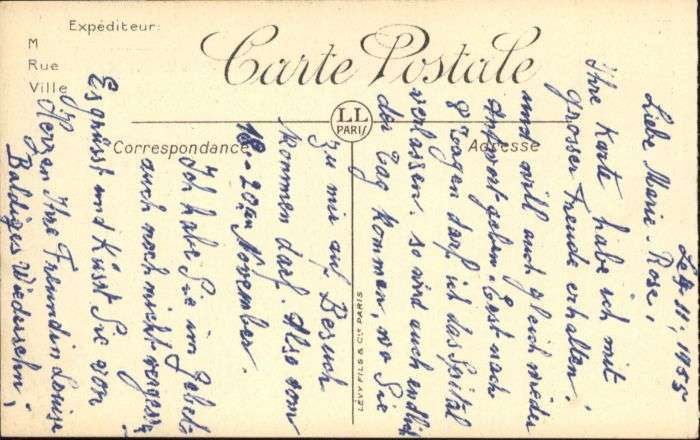 Expéditeur:
M
Rue
Ville
Carte Postale
LL
PARIS
Correspondance
Adresse
LEVY FILS & Cie PARIS
11, 1955
Liebe Marie-Rose,
Ihre Karte habe ich mit
grosser Freude erhalten.
und will auch gleich wieder
Antwort geben. Erst nach
8 Tagen darf ich das Spital
verlassen. so wird auch endlich
der Tag kommen, wo Sie
zu mir auf Besuch
kommen darf. Also vom
18.-20ten November.
Ich habe Sie im Gebet
auch noch nicht vergessen
Es grüsst und Küsst Sie von
Herzen Ihre Freundin Louise
Baldiges Wiedersehn,